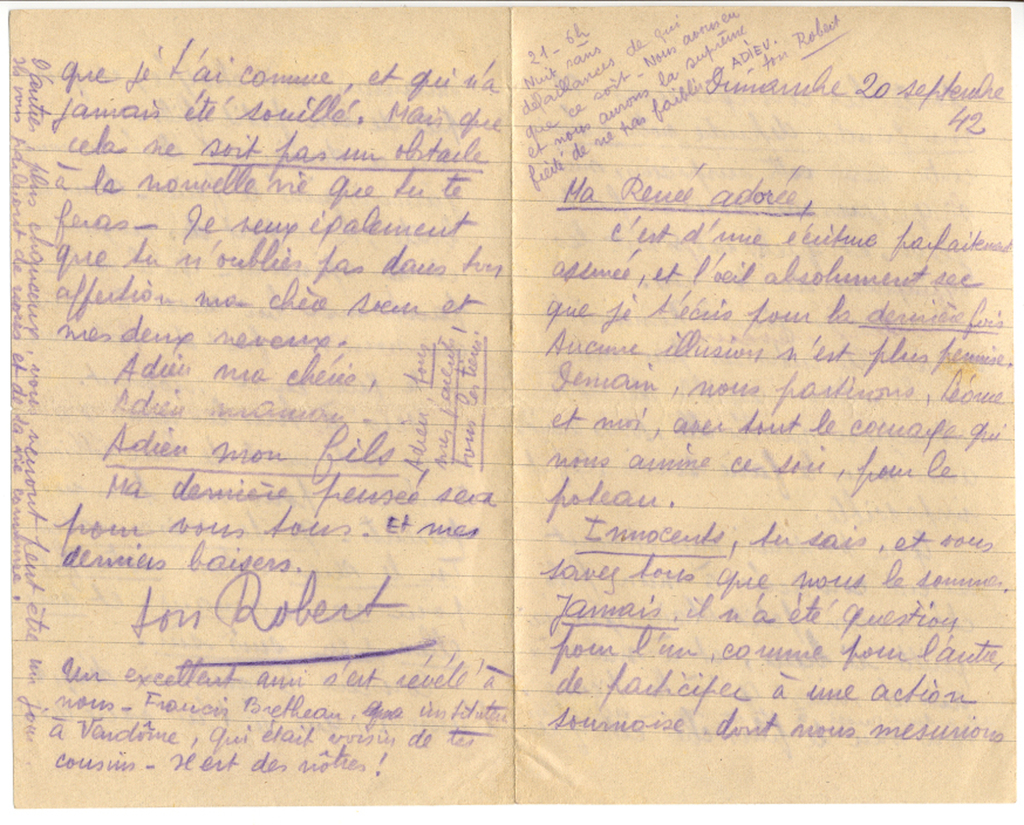 Dimanche 20 septembre
42
21 - 6h
Nuit sans
défaillances de qui
que ce soit - Nous avons eu
et nous aurons la suprême
fierté de ne pas faiblir. ADIEU.
ton Robert
Ma Renée adorée,
c'est d'une écriture parfaitement
assurée, et l'œil absolument sec
que je t'écris pour la dernière fois
Aucune illusion n'est plus permise.
Demain, nous partirons,
et moi, avec tout le courage qui
nous anime ce soir, pour le
poteau.
Innocents, tu sais, et vous
savez tous que nous le sommes.
Jamais, il n'a été question
pour l'un, comme pour l'autre,
de participer à une action
sournoise dont nous mesurions
que je t'ai connue, et qui n'a
jamais été souillé. Mais que
cela ne soit pas un obstacle
à la nouvelle vie que tu te
feras - Je veux également
que tu n'oublies pas dans ton
affection ma chère sœur et
mes deux neveux.
Adieu ma chérie,
Adieu maman -
Adieu mon fils -
Adieu, vous
tous les tiens!
Ma dernière pensée sera
pour vous tous. Et mes
derniers baisers.
ton Robert
Un excellent ami s'est révélé à
nous - Francis Bretheau, instituteur
à Vendôme, qui était voisin de tes
cousins - Il est des nôtres!
D'autres, plus chanceux, vous verront peut être un jour
Ils vous parleront de nous et de la vie commune.